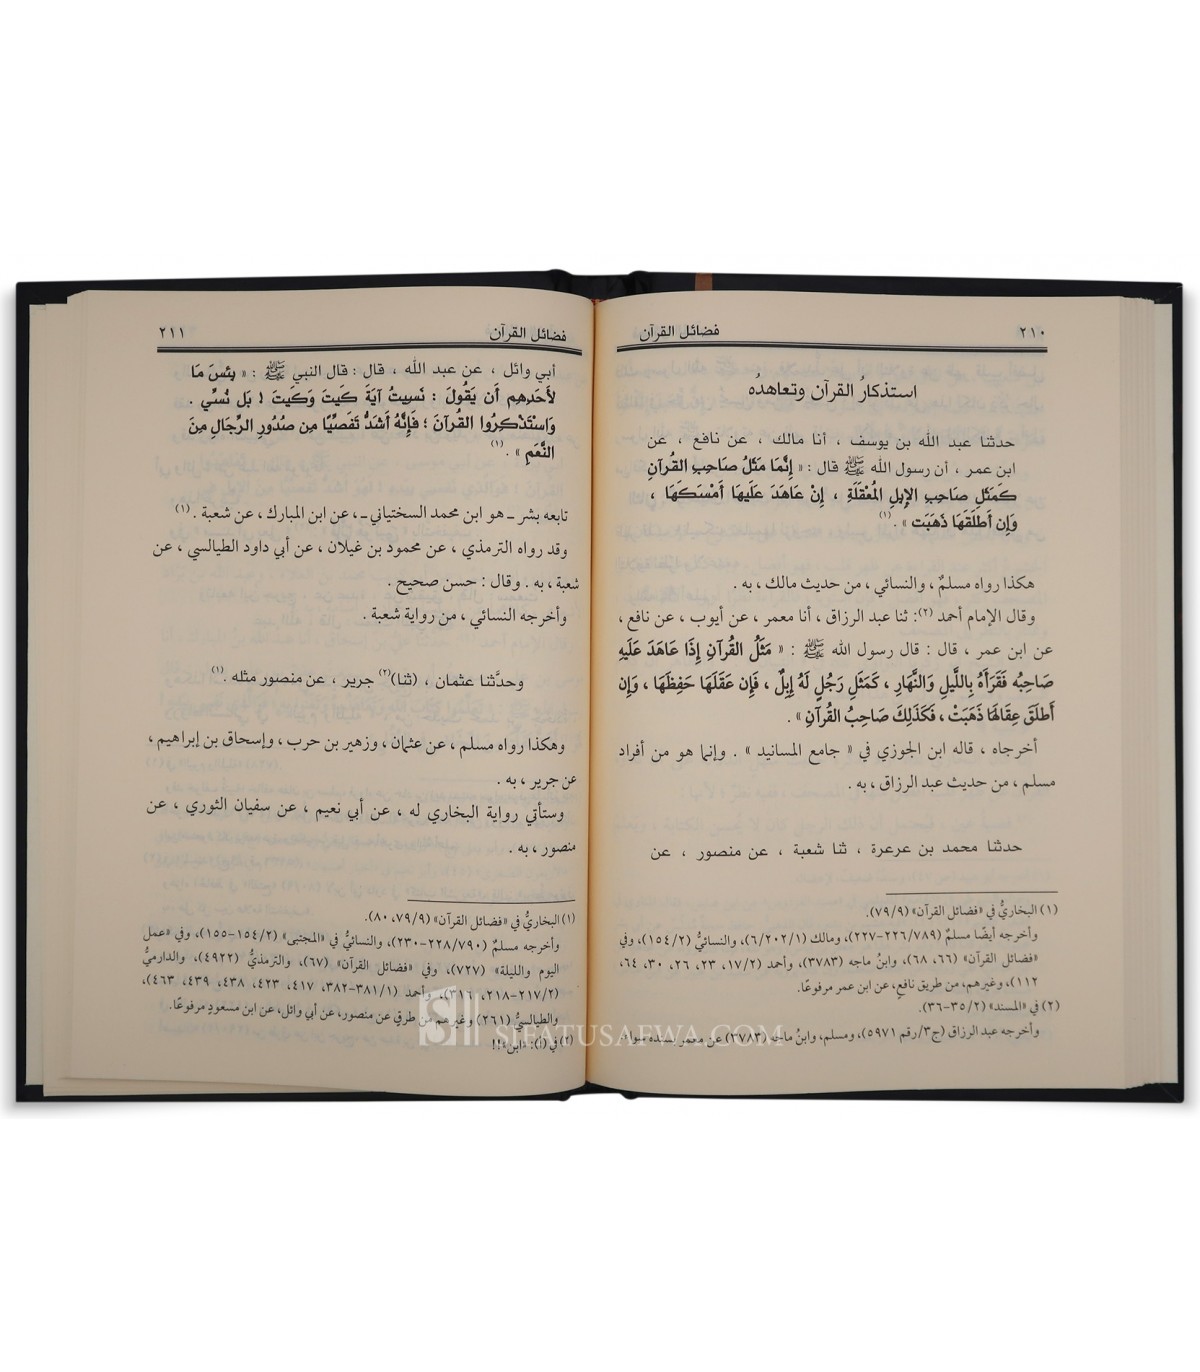 ٢١٠ فضائل القرآن
استذكارُ القرآن وتعاهدهُ
حدثنا عبد الله بن يوسف ، أنا مالك ، عن نافع ، عن
ابن عمر ، أن رسول الله ﷺ قال : « إِنَّمَا مَثَلُ صَاحِبِ القُرآنِ
كَمَثَلِ صَاحِبِ الإِبِلِ المُعْقَلَةِ ، إِنْ عَاهَدَ عَلَيهَا أَمْسَكَهَا ،
وَإِن أَطلَقَهَا ذَهَبَت » . (١)
هكذا رواه مسلمٌ ، والنسائي ، من حديث مالك ، به .
وقال الإمام أحمد (٢): ثنا عبد الرزاق ، أنا معمر ، عن أيوب ، عن نافع ،
عن ابن عمر ، قال : قال رسول الله ﷺ : « مَثَلُ القُرآنِ إِذَا عَاهَدَ عَلَيهِ
صَاحِبُه فَقَرَأَهُ بِاللَّيلِ وَالنَّهَارِ ، كَمَثَلِ رَجُلٍ لَهُ إِبِلٌ ، فَإِن عَقَلَهَا حَفِظَهَا ، وَإِن
أَطلَقَ عِقَالَهَا ذَهَبَتْ ، فَكَذَلِكَ صَاحِبُ القُرآنِ » .
أخرجاه ، قاله ابن الجوزي في « جامع المسانيد » . وإنما هو من أفراد
مسلم ، من حديث عبد الرزاق ، به .
حدثنا محمد بن عرعرة ، ثنا شعبة ، عن منصور ، عن
(١) البخاريُّ في «فضائل القرآن» (٧٩/٩).
وأخرجه أيضًا مسلمٌ (٢٢٦/٧٨٩-٢٢٧)، ومالك (٦/٢٠٢/١)، والنسائيُّ (١٥٤/٢)، وفي
«فضائل القرآن» (٦٦، ٦٨)، وابنُ ماجه (٣٧٨٣)، وأحمد (١٧/٢، ٢٣، ٢٦، ٣٠، ٦٤،
١١٢)، وغيرهم، من طريق نافعٍ، عن ابن عمر مرفوعًا.
(٢) في «المسند» (٣٥/٢-٣٦).
وأخرجه عبد الرزاق (ج٣/رقم ٥٩٧١)، ومسلم، وابنُ ماجه (٣٧٨٣) عن معمر بسنده سواء.
فضائل القرآن ٢١١
أبي وائل ، عن عبد الله ، قال : قال النبي ﷺ : « بِئسَ مَا
لأَحَدِهِم أَن يَقُولَ : نَسِيتُ آيَةَ كَيتَ وَكَيتَ ! بَل نُسِّي .
وَاسْتَذْكِرُوا القُرآنَ ؛ فَإِنَّهُ أَشَدُّ تَفَصِّيًا مِن صُدُورِ الرِّجَالِ مِنَ
النَّعَمِ » . (١)
تابعه بشر ـ هو ابن محمد السختياني ـ، عن ابن المبارك ، عن شعبة . (١)
وقد رواه الترمذي ، عن محمود بن غيلان ، عن أبي داود الطيالسي ، عن
شعبة ، به . وقال : حسن صحيح .
وأخرجه النسائي ، من رواية شعبة .
وحدَّثنا عثمان ، (ثنا)(٢) جرير ، عن منصور مثله .(١)
وهكذا رواه مسلم ، عن عثمان ، وزهير بن حرب ، وإسحاق بن إبراهيم ،
عن جرير ، به .
وستأتي رواية البخاري له ، عن أبي نعيم ، عن سفيان الثوري ، عن
منصور ، به .
(١) البخاريُّ في «فضائل القرآن» (٧٩/٩، ٨٠).
وأخرجه مسلمٌ (٢٢٨/٧٩٠-٢٣٠)، والنسائيُّ في «المجتبى» (١٥٤/٢-١٥٥)، وفي «عمل
اليوم والليلة» (٧٢٧)، وفي «فضائل القرآن» (٦٧)، والترمذيُّ (٤٩٢٢)، والدارميُّ
(٢١٧/٢-٢١٨، ٣١٦)، وأحمد (٣٨١/١-٣٨٢، ٤١٧، ٤٢٣، ٤٣٨، ٤٣٩، ٤٦٣)،
والطيالسيُّ (٢٦١) وغيرهم من طرقٍ عن منصور، عن أبي وائل، عن ابن مسعودٍ مرفوعًا.
(٢) في (أ): «ابن»!!
SIFATUSAFWA.COM